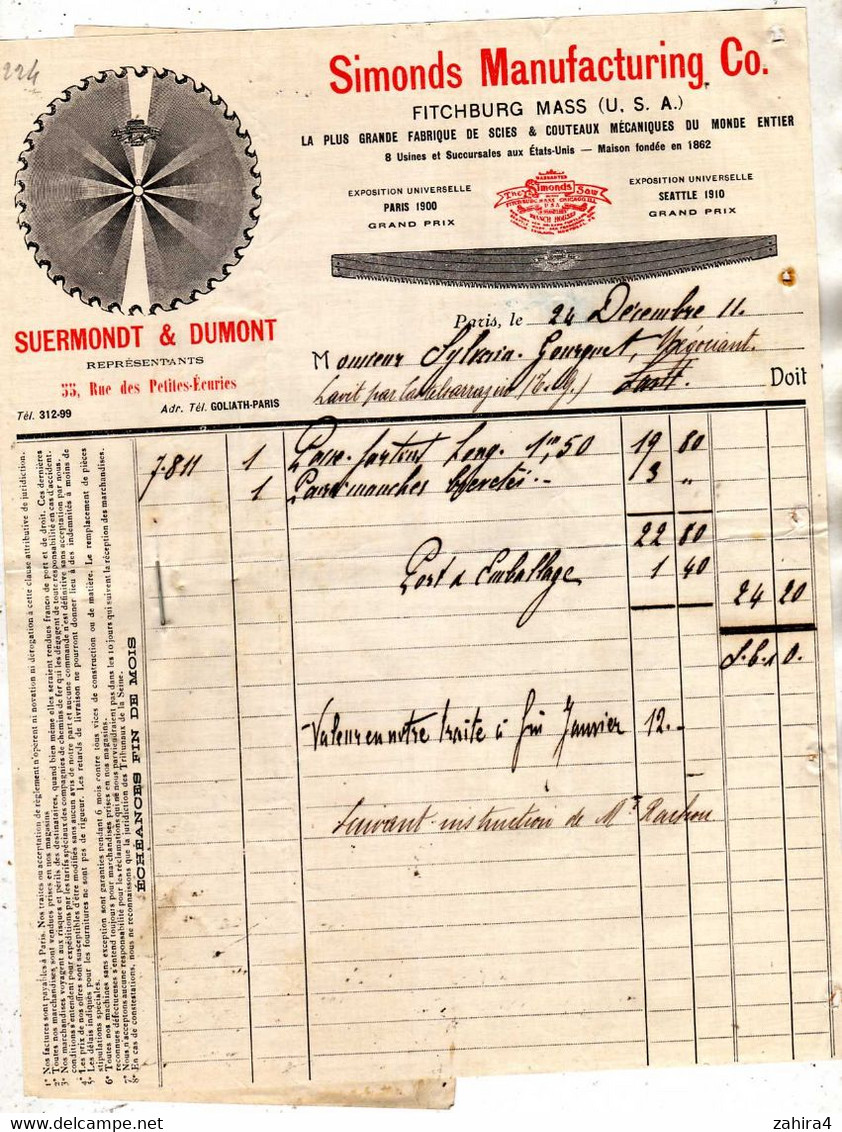 224
Simonds Manufacturing Co.
FITCHBURG MASS (U. S. A.)
LA PLUS GRANDE FABRIQUE DE SCIES & COUTEAUX MÉCANIQUES DU MONDE ENTIER
8 Usines et Succursales aux États-Unis — Maison fondée en 1862
EXPOSITION UNIVERSELLE
PARIS 1900
GRAND PRIX
WARRANTED
The Simonds Saw
EXPOSITION UNIVERSELLE
SEATTLE 1910
GRAND PRIX
SUERMONDT & DUMONT
REPRÉSENTANTS
55, Rue des Petites-Écuries
Tél. 312-99 Adr. Tél. GOLIATH-PARIS
Paris, le 24 Décembre 11.
Monsieur Sylvain Gourguet, Négociant.
Lavit par Castelsarrasin (T. &G.) Doit
7.811 1 Passe-partout long. 1m,50 19 80
1 Paire manches brevetés.. 3 "
22 80
Port & Emballage 1 40
24 20
S.b.s O.
Valeur en notre traite à fin Janvier 12.-
Suivant instruction de Mr Rachou
1° Nos factures sont payables à Paris. Nos traites ou acceptation de règlement n'opèrent ni novation ni dérogation à cette clause attributive de juridiction.
2° Toutes nos marchandises sont vendues prises en nos magasins
3° Nos marchandises voyagent aux risques et périls des destinataires, quand bien même elles seraient rendues franco de port et de droit. Ces dernières
conditions s'entendent pour expéditions par les tarifs spéciaux des compagnies de chemins de fer qui les dégagent de toute responsabilité en cas d'accident.
4° Les prix de nos offres sont susceptibles d'être modifiés sans aucun avis de notre part et aucune commande n'est définitive sans acceptation par nous.
5° Les délais indiqués pour les fournitures ne sont pas de rigueur. Les retards de livraison ne pourront donner lieu à des indemnités à moins de
stipulations spéciales.
6° Toutes nos machines sans exception sont garanties pendant 6 mois contre tous vices de construction ou de matière. Le remplacement de pièces
reconnues défectueuses s'entend toujours pour marchandises prises en nos magasins.
7° Nous n'acceptons aucune responsabilité pour les réclamations qui ne nous parviendraient pas dans les 10 jours qui suivent la réception des marchandises.
8° En cas de constestations, nous ne reconnaissons que la juridiction des Tribunaux de la Seine.
ÉCHÉANCES FIN DE MOIS
zahira4